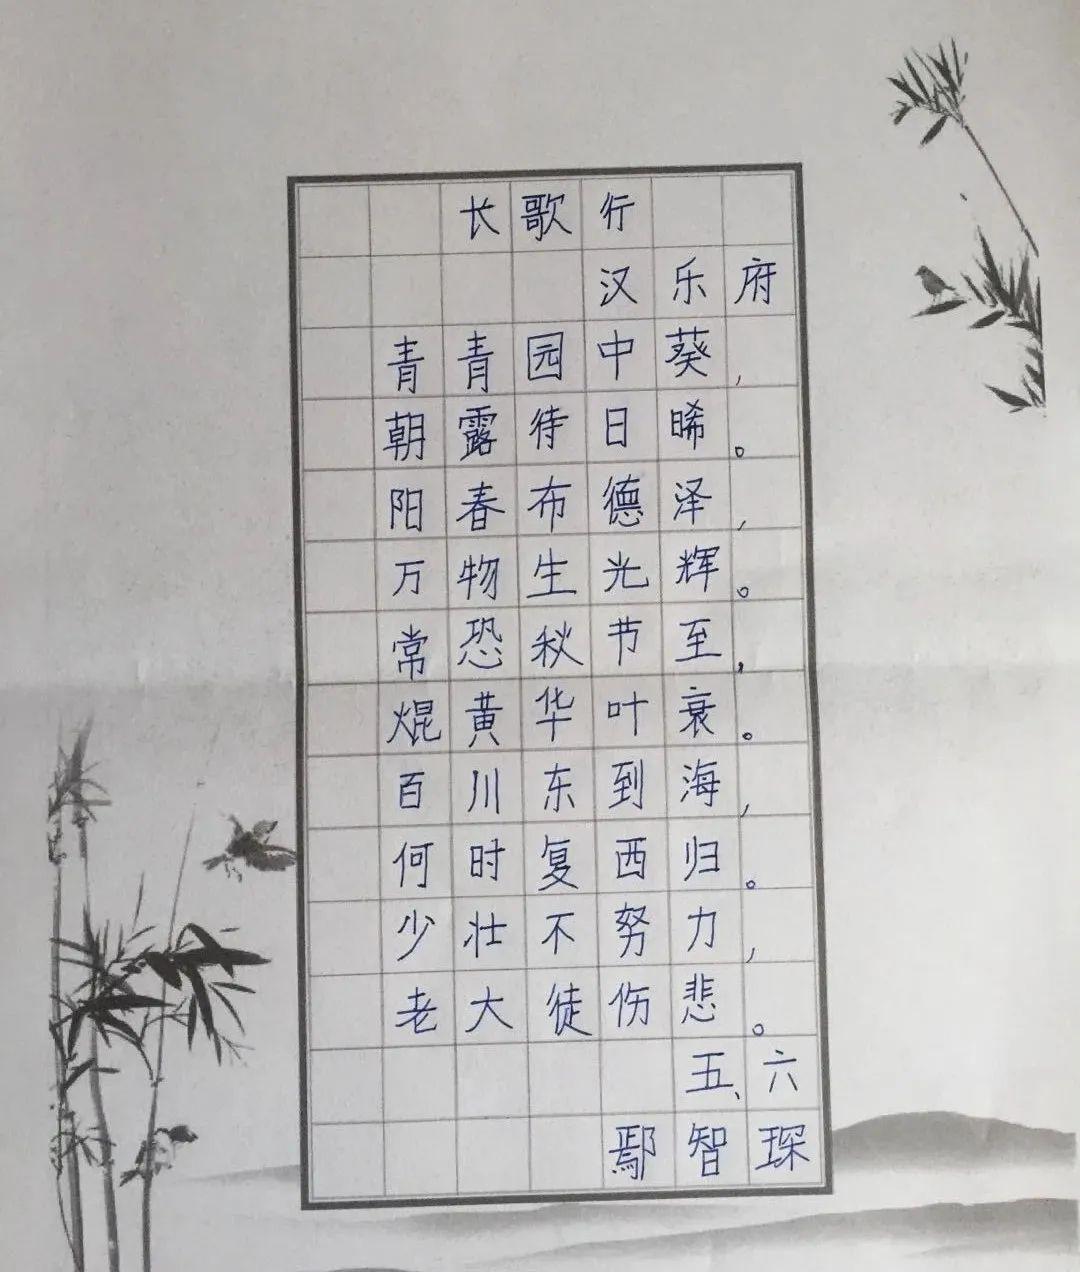 长歌行
汉乐府
青青园中葵，
朝露待日晞。
阳春布德泽，
万物生光辉。
常恐秋节至，
焜黄华叶衰。
百川东到海，
何时复西归。
少壮不努力，
老大徒伤悲。
五、六
鄢智琛